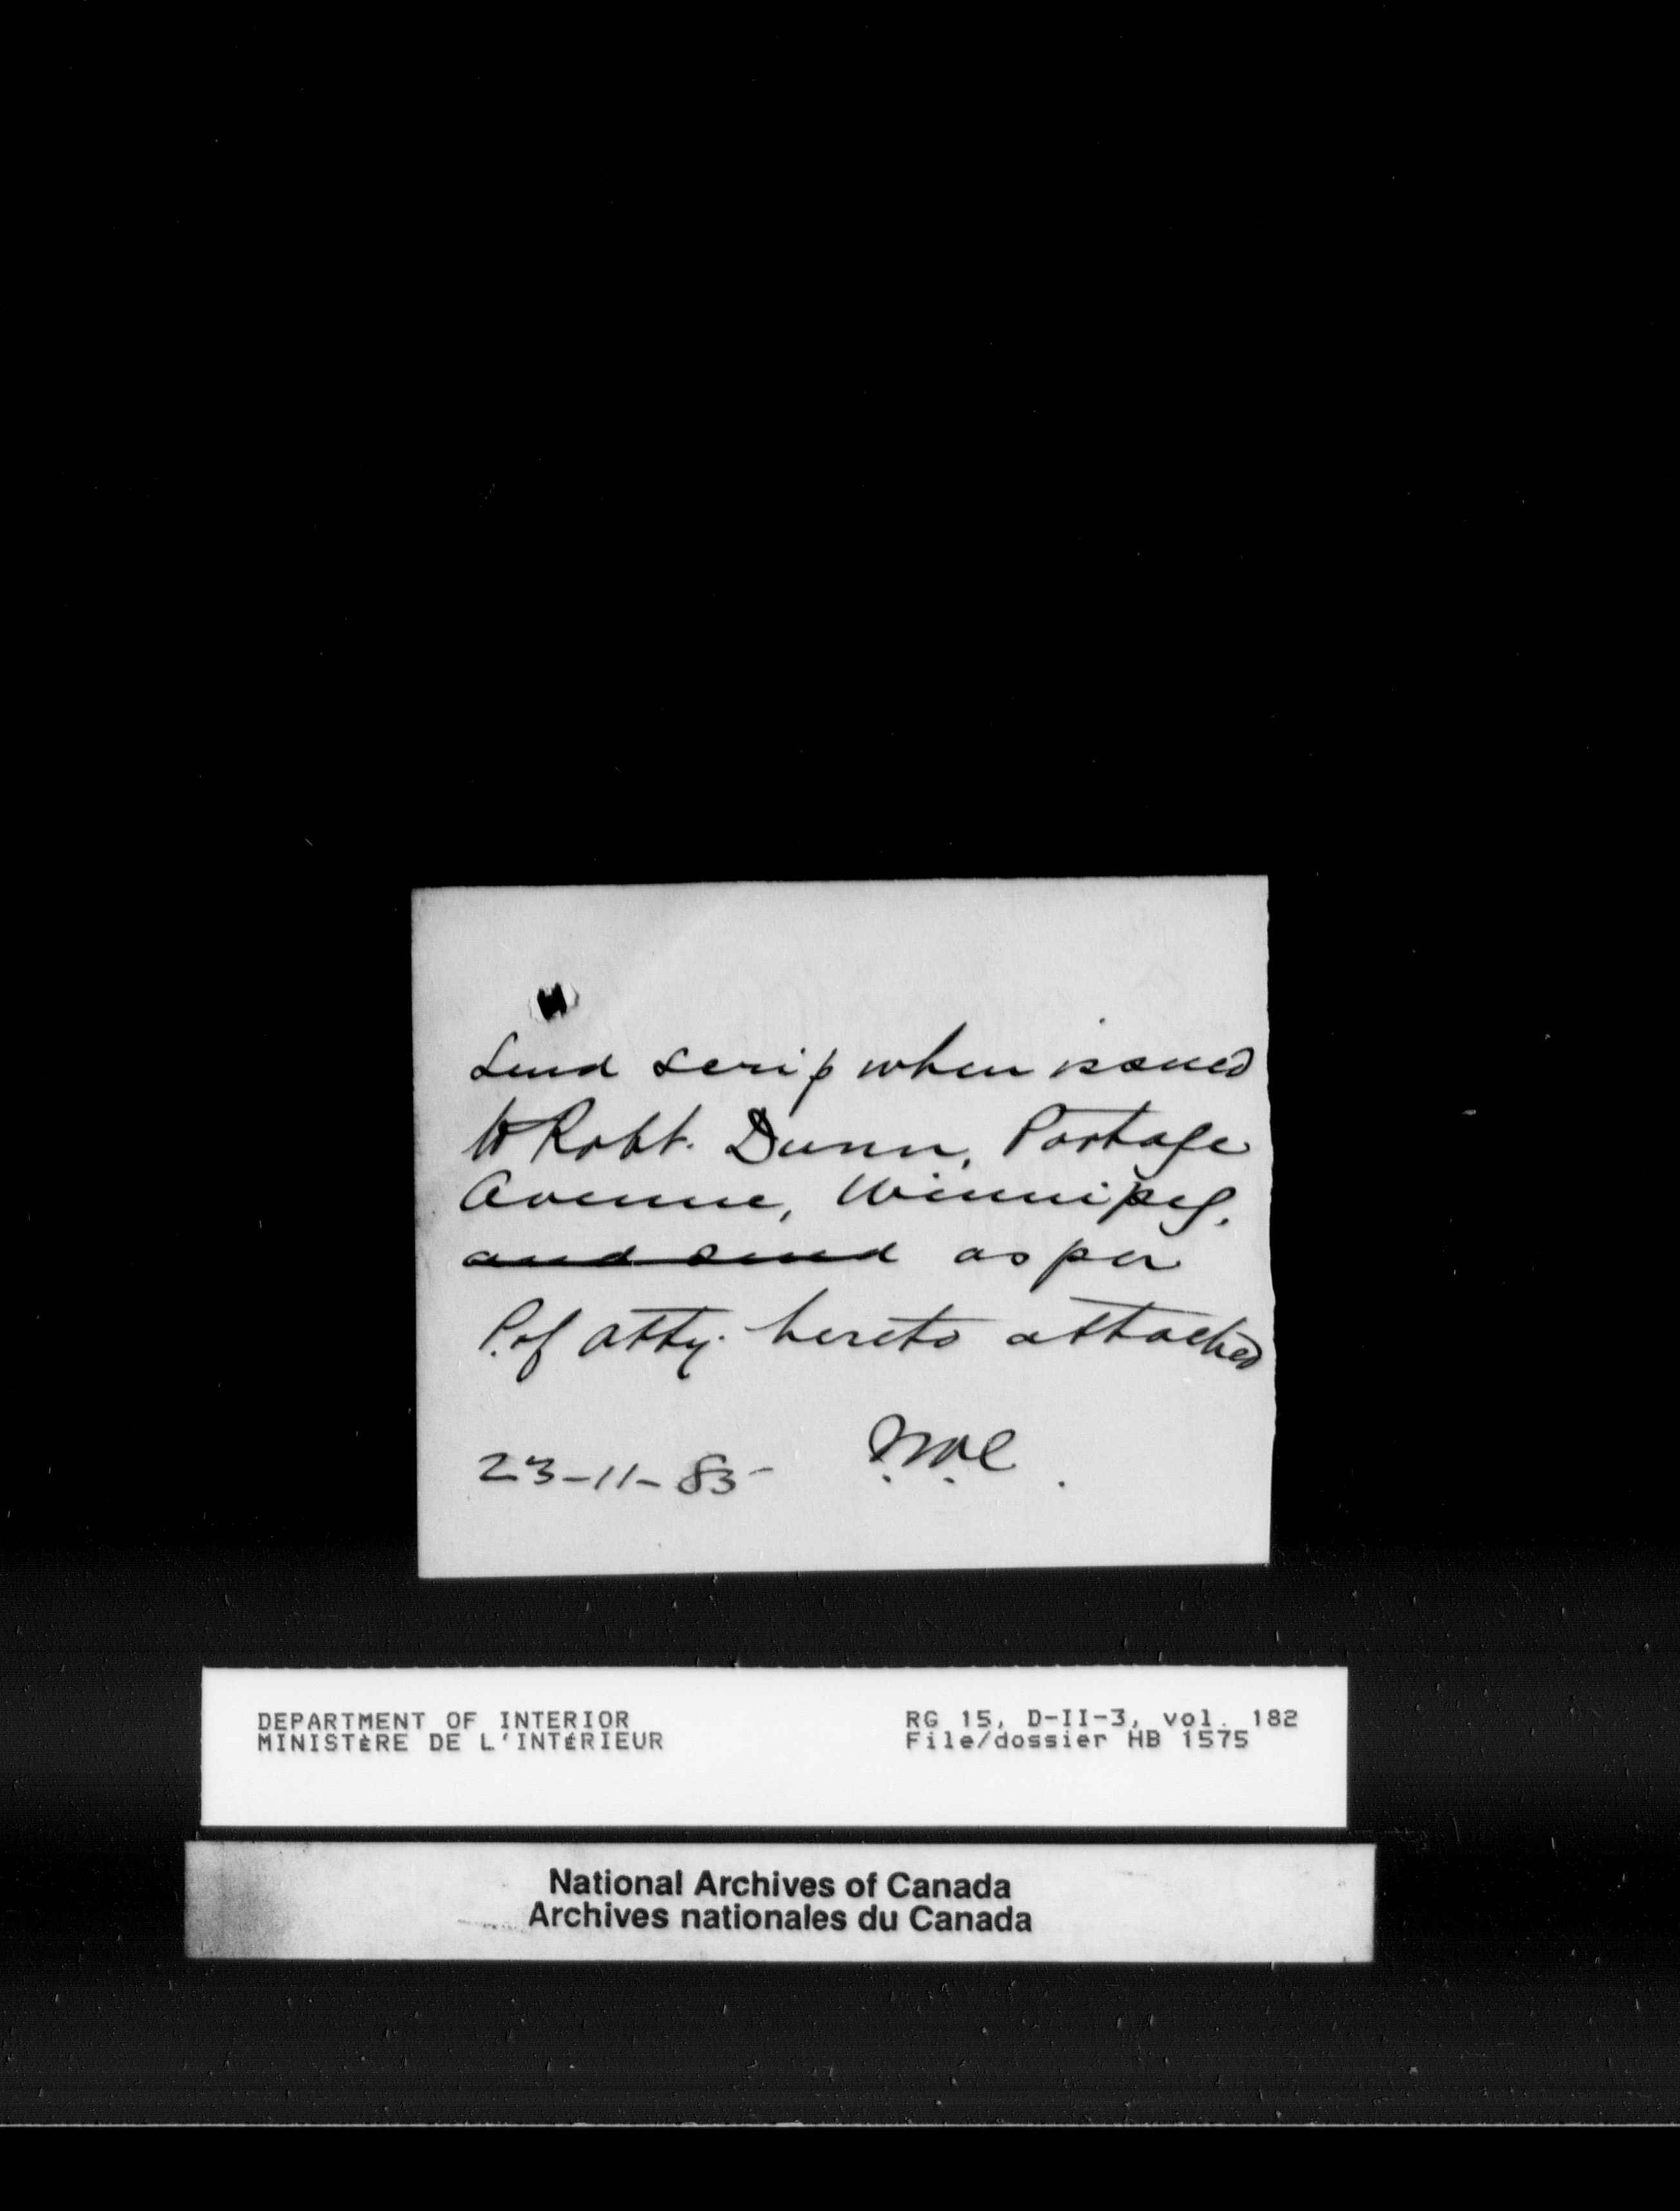 Send scrip when issued
to Robt. Dunn, Portage
Avenue, Winnipeg,
and send as per
P. of Atty. hereto attached
23-11-85
DEPARTMENT OF INTERIOR
MINISTÈRE DE L'INTÉRIEUR
RG 15, D-II-3, vol. 182
File/dossier HB 1575
National Archives of Canada
Archives nationales du Canada